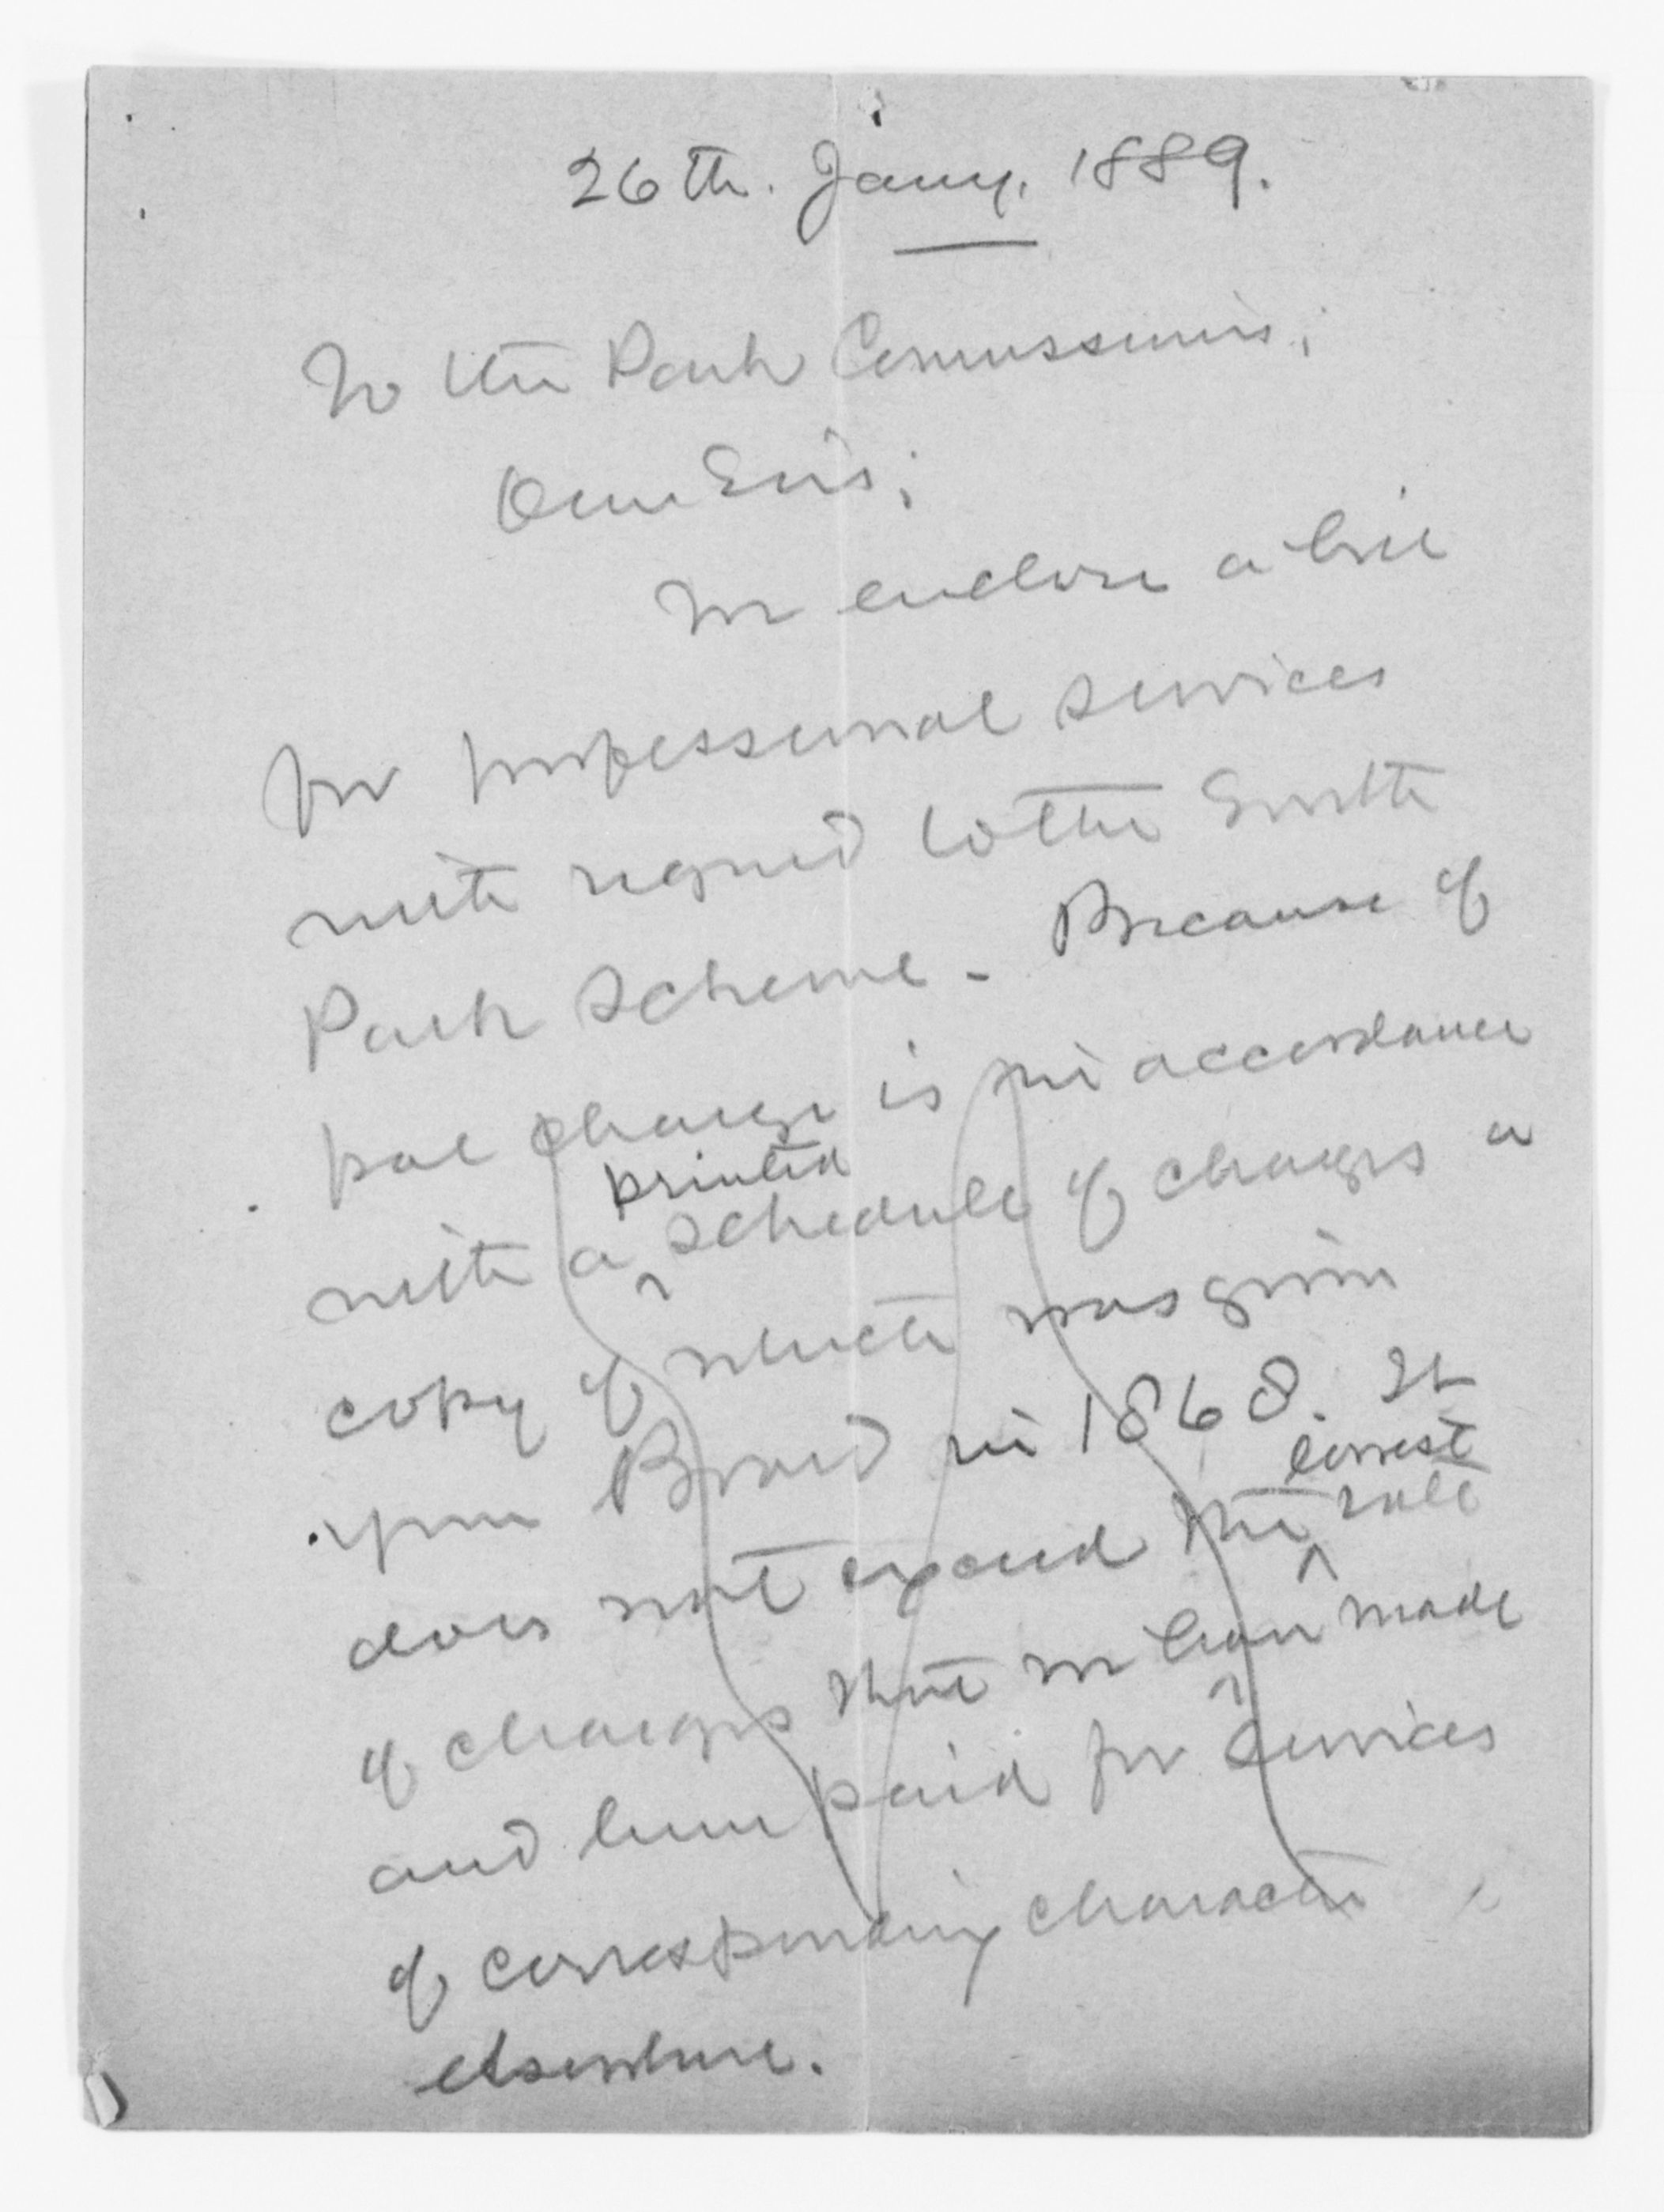 26th. Jany. 1889.
To the Park Commissioners;
Dear Sirs;
We enclose a bill
for professional services
with regard to the South
Park Scheme - Because of
charge is in accordance
with a printed schedule of charges a
copy of which was given
your Board in 1868. It
does not exceed the lowest rate
of charges that we have made
and been paid for services
of corresponding character
elsewhere.